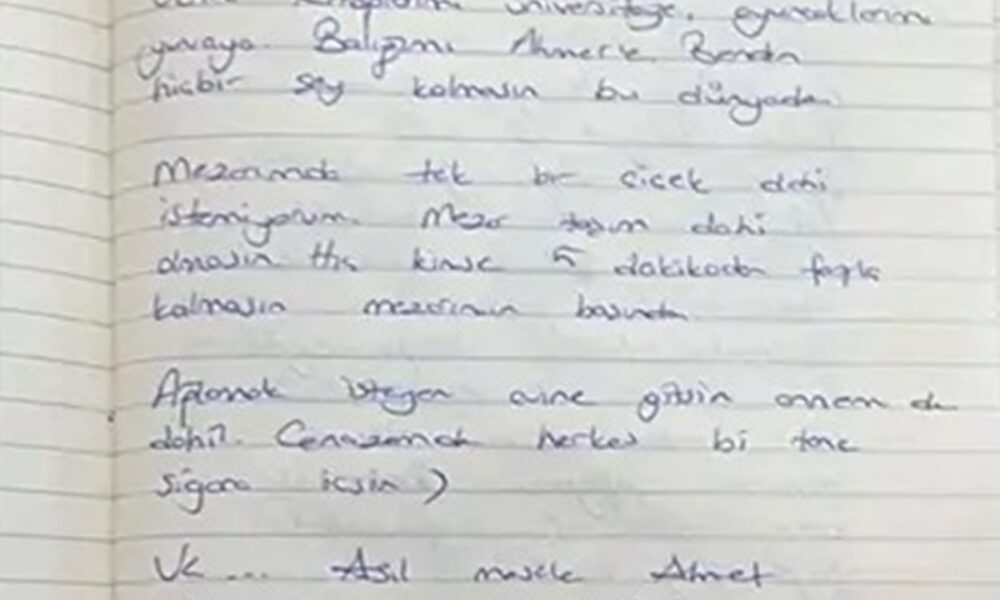 üniversiteye, oyuncaklarım
yuvaya. Balığımı Ahmet'e. Benden
hiçbir şey kalmasın bu dünyada.
Mezarımda tek bir çiçek dahi
istemiyorum. Mezar taşım dahi
olmasın. Hiç kimse 5 dakikadan fazla
kalmasın mezarımın başında
Ağlamak isteyen evine gitsin annem de
dahil. Cenazemde herkes bi tane
sigara içsin )
Ve... Asıl mesele Ahmet